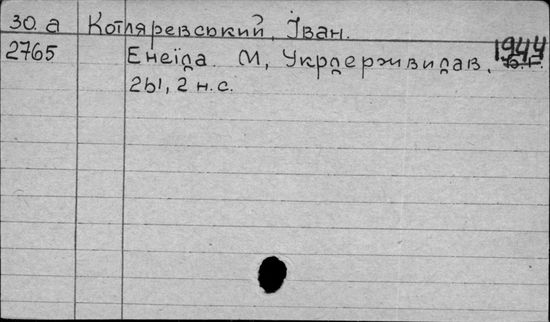 30. а Котляревський, Іван.
2765 Енеїда. М, Укрдержвидав, 1944
261, 2 н.с.